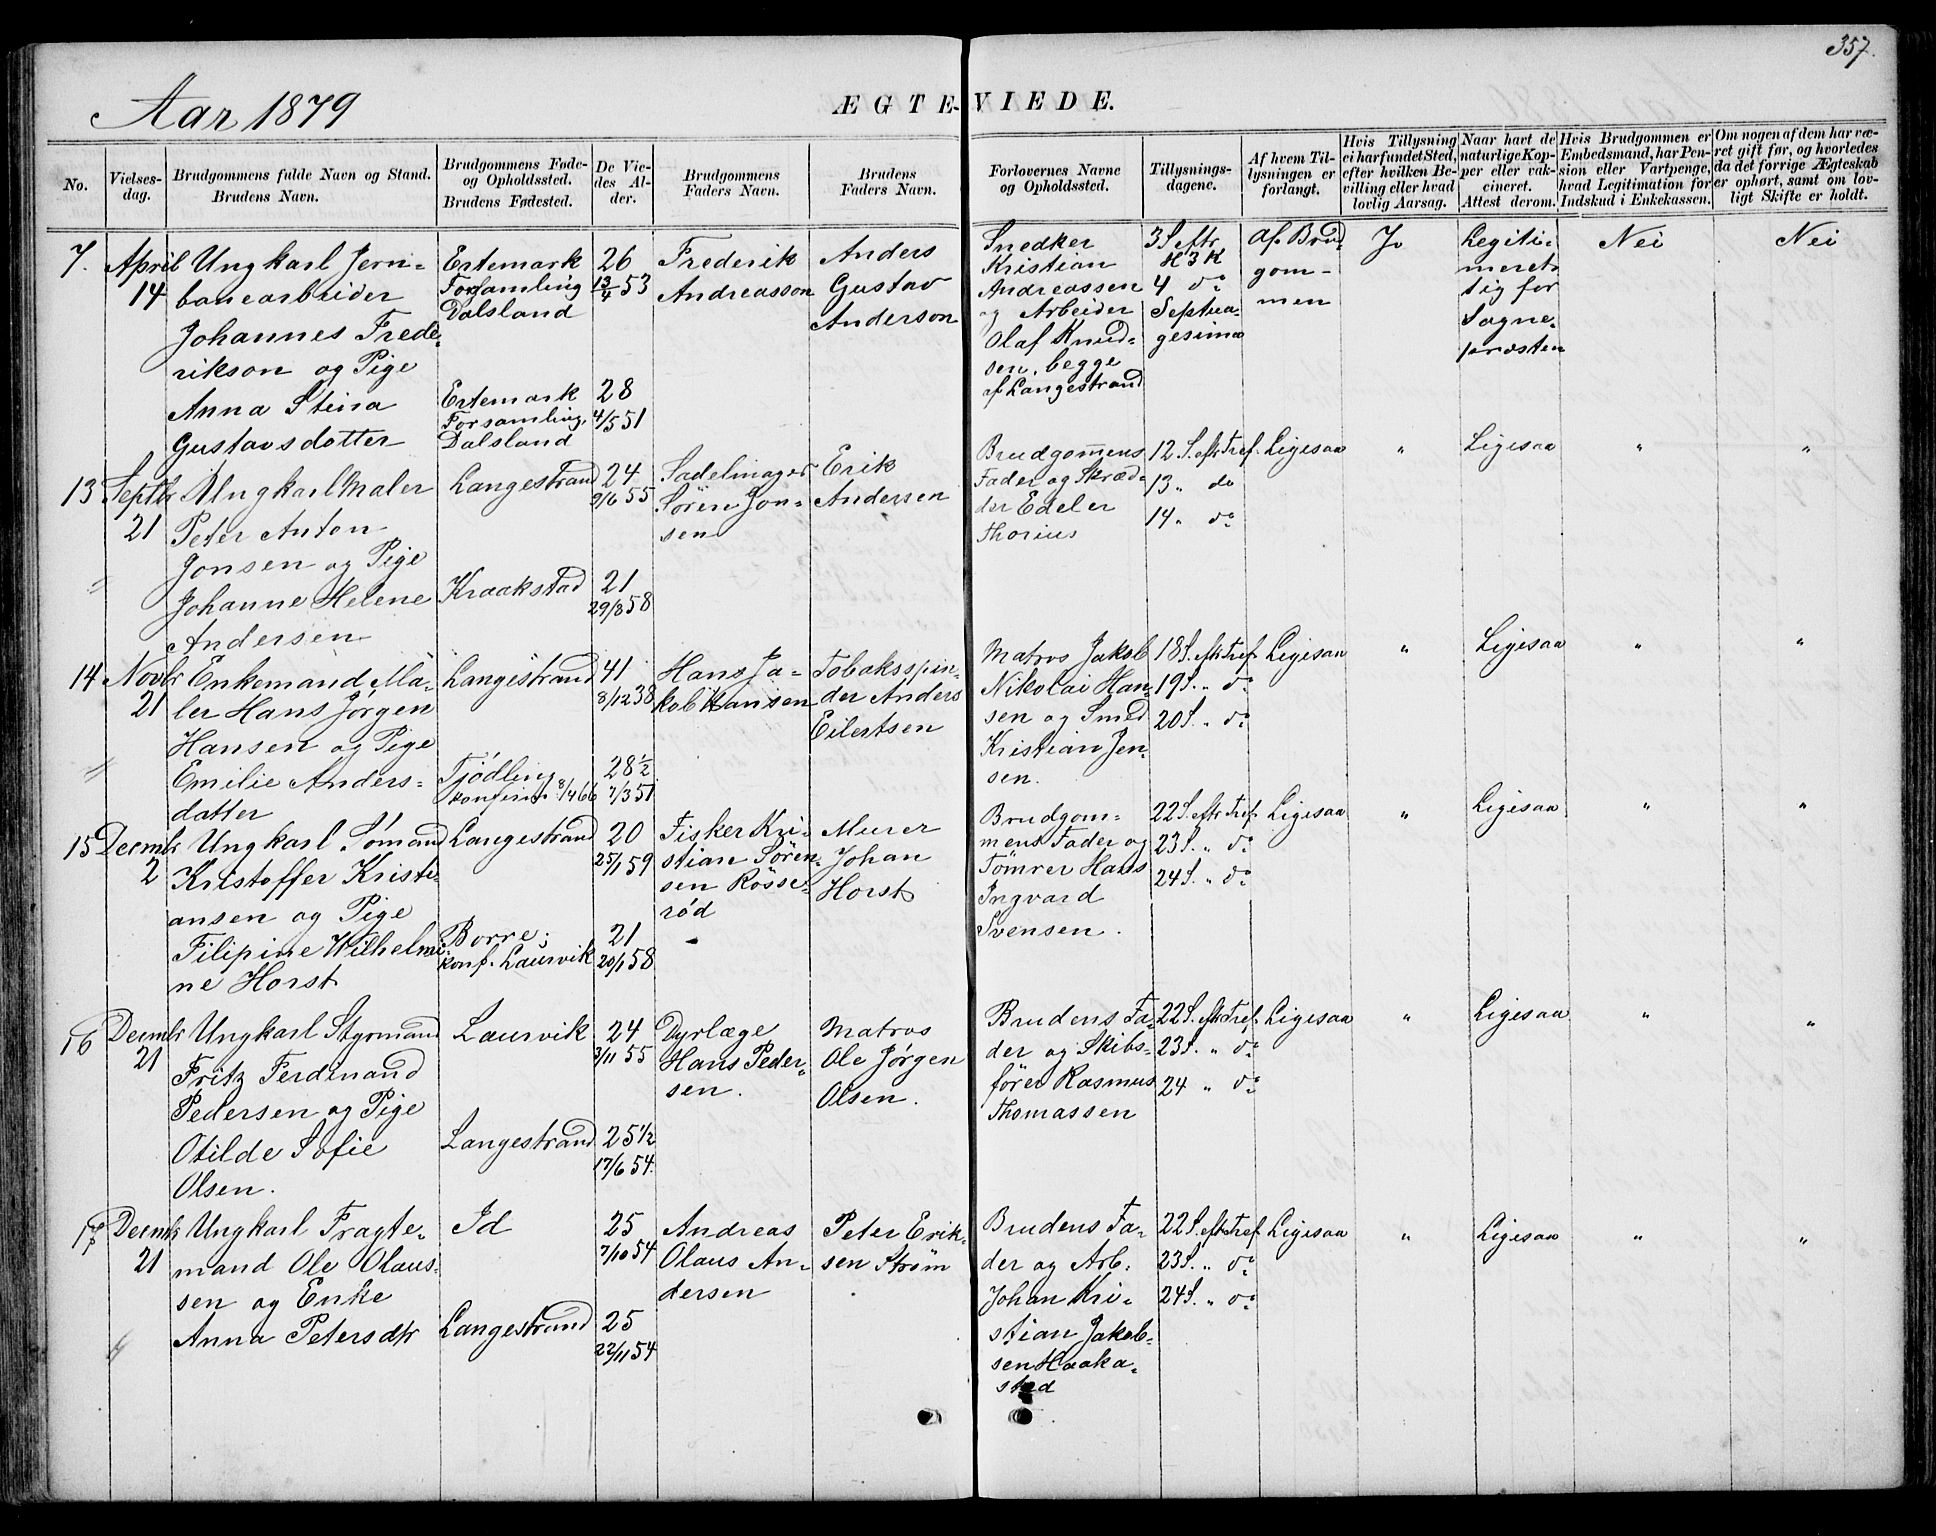 357.
Aar 1879
ÆGTEVIEDE.
No.
Vielses-
dag.
Brudgommens fulde Navn og Stand.
Brudens Navn.
Brudgommens Føde-
og Opholdssted.
Brudens Fødested.
De Vie-
des Al-
der.
Brudgommens
Faders Navn.
Brudens
Faders Navn.
Forlovernes Navne
og Opholdssted.
Tillysnings-
dagene.
Af hvem Til-
lysningen er
forlangt.
Hvis Tillysning
ei har fundet Sted,
efter hvilken Be-
villing eller hvad
lovlig Aarsag.
Naar havt de
naturlige Kop-
per eller vak-
cineret.
Attest derom.
Hvis Brudgommen er
Embedsmand, har Pen-
sion eller Vartpenge,
hvad Legitimation for
Indskud i Enkekassen.
Om nogen af dem har væ-
ret gift før, og hvorledes
da det forrige Ægteskab
er ophørt, samt om lov-
ligt Skifte er holdt.
7.
April
14
Ungkarl Jern-
banearbeider
Johannes Frede-
rikson og Pige
Anna Stina
Gustavsdotter
Ertemark
Forsamling
Dalsland
Ertemark
Forsamling,
Dalsland
26
13/4 53
28
4/5 51
Frederik
Andreasson
Anders
Gustav
Anderson
Snedker
Kristian
Andreassen
og Arbeider
Olaf Knud-
sen, begge
af Langestrand
3 S eftr.
H 3 K
4 do
Septua-
gesima
af Brud
gom-
men
Legiti-
meret
sig for
Sogne-
præsten
Nei
Nei
13
Septbr
21
Ungkarl Maler
Peter Anton
Jonsen og Pige
Johanne Helene
Andersen
Langestrand
Kraakstad
24
9/6 55
21
29/8 58
Sadelmager
Sören Jon-
sen
Erik
Andersen
Brudgommens
Fader og Skræd-
der Edeler
Thorius
12 S. eftr Tref.
13 " do
14 " do
Ligesaa
"
Ligesaa
"
"
14
Novbr
21
Enkemand Ma-
ler Hans Jørgen
Hansen og Pige
Emilie Anders-
datter
Langestrand
Tjödling
konfirm. 8/4 66
41
8/12 38
28 1/2
7/3 51
Hans Ja-
kob Hansen
Tobaksspin-
der Anders
Eilertsen
Matros Jakob
Nikolai Han-
sen og Smed
Kristian Jen-
sen.
18 S. eftr Tref.
19 S. " do
20 S. " do
Ligesaa
"
Ligesaa
"
"
15
Decmbr
2
Ungkarl Sömand
Kristoffer Kristi-
ansen og Pige
Filipine Wilhelmi-
ne Horst
Langestrand
Borre;
konf. Laurvik
20
25/1 59
21
20/1 58
Fisker Kri-
stian Sören-
sen Rösse-
rød
Murer
Johan
Horst
Brudgom-
mens Fader og
Tömrer Hans
Ingvard
Svensen.
22 S. eftr Tref.
23 S. " do
24 S. " do
Ligesaa
"
Ligesaa
"
"
16
Decmbr
21
Ungkarl Styrmand
Fritz Ferdinand
Pedersen og Pige
Otilde Sofie
Olsen.
Laurvik
Langestrand
24
3/11 55
25 1/2
17/6 54.
Dyrlæge
Hans Peder-
sen.
Matros
Ole Jørgen
Olsen.
Brudens Fa-
der og Skibs-
förer Rasmus
Thomassen
22 S. eftr Tref.
23 S. " do
24 " do
Ligesaa
"
Ligesaa
"
"
17
Decmbr
21
Ungkarl Fragte-
mand Ole Olaus-
sen og Enke
Anna Petersdtr
Id
Langestrand
25
7/10 54
25
22/11 54
Andreas
Olaus An-
dersen
Peter Erik-
sen Strøm
Brudens Fa-
der og Arb.
Johan Kri-
stian Jakob-
sen Haaka-
stad
22 S. eftr Tref.
23 S. " do
24 S. " do
Ligesaa
"
Ligesaa
"
"